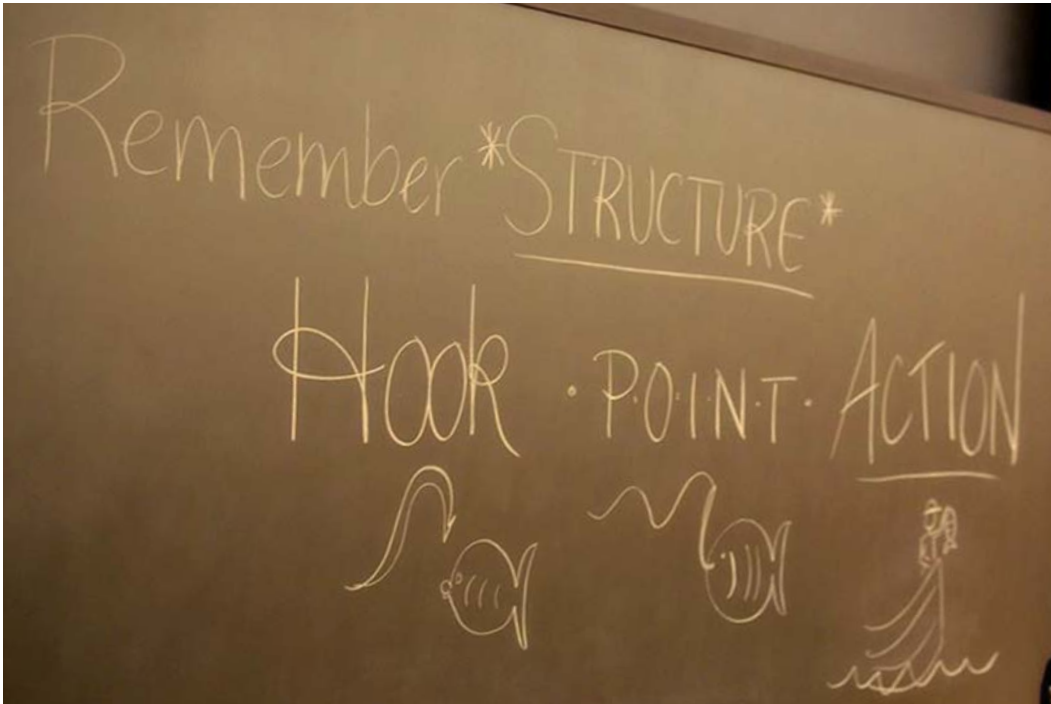 Remember *STRUCTURE*
Hook · P·O·I·N·T · ACTION